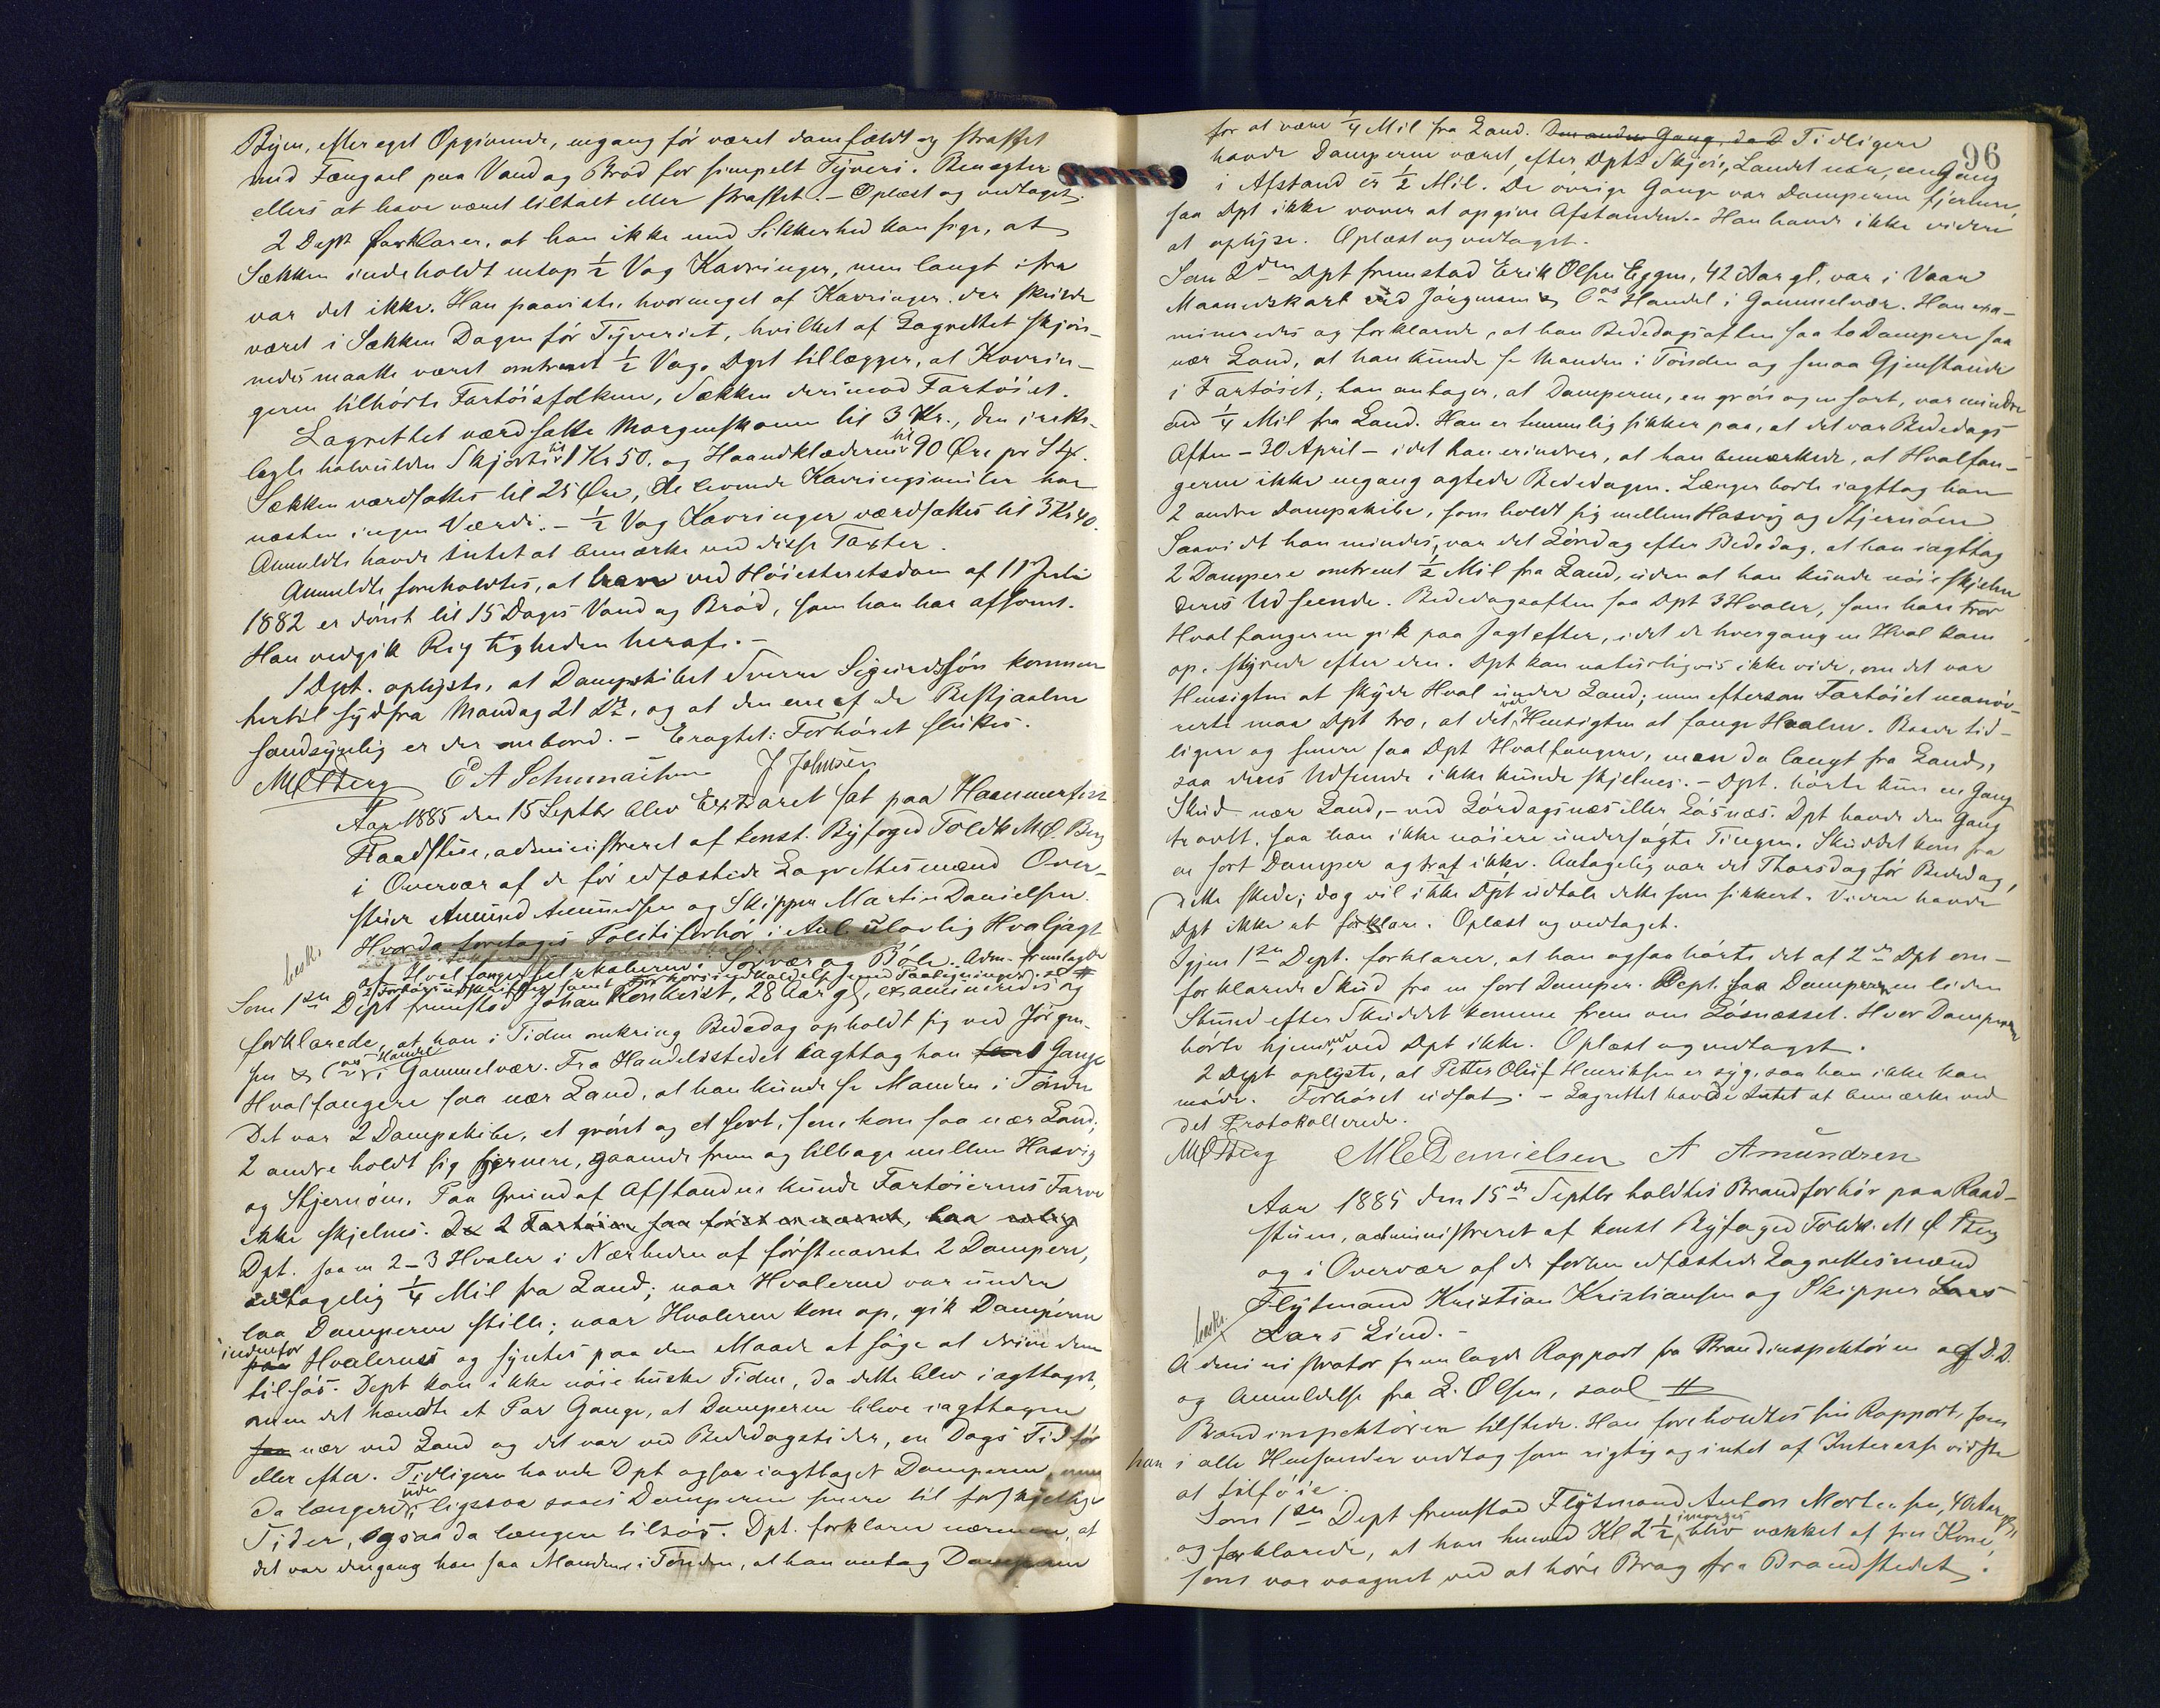 Byen, efter eget Opgivende, engang før været domfældt og straffet
med Fængsel paa Vand og Brød for simpelt Tyveri. Benegter
ellers at have været tiltalt eller straffet. – Oplæst og vedtaget.
2 Dept forklarer, at han ikke med Sikkerhed kan sige, at
Sækken indeholdt netop 1/2 Vog Kavringer, men langt ifra
var det ikke. Han paaviste, hvormeget af Kavringer der skulde
været i Sækken Dagen før Tyveriet, hvilket af Lagrettet skjøn-
nedes maatte været omtrent 1/2 Vog. Dpt tillægger, at Kavrin-
gerne tilhørte Fartøisfolkene, Sækken derimod Fartøiet.
Lagrettet værdsatte Morgenskoene til 3 Kr., den irette-
lagte halvuldne Skjorte til 1 Kr 50. og Haandklæderne til 90 Øre pr Stk.
Sækken værdsattes til 25 Øre, de levende Kavringsmiler har
næsten ingen Værdi. – 1/2 Vog Kavringer værdsattes til 3 Kr 40.
Anmeldte havde Intet at bemærke ved disse Taxter.
Anmeldte foreholdtes, at han ved Høiesteretsdom af 11 Juli
1882 er dømt til 15 Dages Vand og Brød, som han har afsonet.
Han vedgik Rigtigheden heraf. –
1 Dpt. oplyste, at Dampskibet Sverre Sigurdssøn kommer
hertil sydfra Mandag 21 Ds, og at den ene af de Bestjaalne
sandsynlig er der ombord. – Eragtet: Forhøret sluttes.
M Ø Berg E A Schumaitum J Johnsen
Aar 1885 den 15 Septbr blev Extraret sat paa Hammerfest
Raadstue, administreret af konst. Byfoged Toldk M. Ø. Berg
i Overvær af de før edfæstede Lagrettesmænd Over-
stuer Amund Amundsen og Skipper Martin Danielsen.
beskr.
Hvorda foretoges Politiforhør i Anl. ulovlig Hvaljagt
af Hvalfangerselskaberne i Sørvær og Bøle. Adm. fremlagde
2 Forhørsudskrifter samt Forhørsindkaldelse med Paategninger saal #
Som 1ste Dept fremstod Johan Kornkvist, 28 Aar gl, examineredes og
forklarede, at han i Tiden omkring Bededag opholdt sig ved Jørgen-
sen & Cos Handel i Gammelvær. Fra Handelsstedet iagttog han 1 Gange
Hvalfangere saa nær Land, at han kunde se Manden i Tønden
Det var 2 Dampskibe, et grønt og et sort, som kom saa nær Land;
2 andre holdt sig fjernere, gaaende frem og tilbage mellem Hasvig
og Stjernøen. Paa Grund af Afstanden kunde Fartøiernes Farve
ikke skjelnes. De 2 Fartøier saa først nævnt, laa rolig
Dpt. saa en 2–3 Hvaler i Nærheden af førstnævnte 2 Dampere,
antagelig 1/4 Mil fra Land; naar Hvalerne var under
laa Damperne stille; naar Hvalerne kom op, gik Damperne
indenfor
paa Hvalernes og syntes paa den Maade at søge at drive dem
tilsøs. Dept kan ikke nøie huske Tiden, da dette blev iagttaget,
men det hændte et Par Gange, at Damperne bleve iagttagne
saa nær ved Land og det var ved Bededagstider, en Dags Tid før
eller efter. Tidligere havde Dpt ogsaa iagttaget Damperne, men
da længere ude; ligesaa saaes Damperne senere til forskjellige
Tider, ogsaa da længere tilsøs. Dpt. forklarer nærmere, at
det var dengang han saa Manden i Tønden, at han antog Damperen
96
for at være 1/4 Mil fra Land. Den anden Gang, da D Tidligere
havde Damperne været, efter Dpts Skjøn, Landet nær, en Gang
i Afstand er 1/2 Mil. De øvrige Gange var Damperne fjernere,
saa Dpt ikke vover at opgive Afstanden. – Han havde ikke videre
at oplyse. Oplæst og vedtaget.
Som 2den Dpt fremstod Erik Olsen Eggen, 42 Aar gl, var i Vaar
Maanedskarl ved Jørgensen & Cos Handel i Gammelvær. Han exa-
mineredes og forklarede, at han Bededagsaften saa to Dampere saa
nær Land, at han kunde se Manden i Tønden og smaa Gjenstande
i Fartøiet; han antager, at Damperne, en grøn og en sort, var mindre
end 1/4 Mil fra Land. Han er temmelig sikker paa, at det var Bededags
Aften – 30 April – idet han erindrer, at han bemærkede, at Hvalfan-
gerne ikke engang agtede Bededagen. Længer borte iagttog han
2 andre Dampskibe, som holdt sig mellem Hasvig og Stjernøen
Saavidt han mindes, var det Søndag efter Bededag, at han iagttog
2 Dampere omtrent 1/2 Mil fra Land, uden at han kunde nøie skjelne
deres Udseende. Bededagsaften saa Dpt 3 Hvaler, som han tror
Hvalfangerne gik paa Jagt efter, idet de hvergang en Hval kom
op, styrede efter den. Dpt kan naturligvis ikke vide, om det var
Hensigten at skyde Hval under Land; men eftersom Fartøiet manøv-
rerte maa Dpt tro, at det var Hensigten at fange Hvalen. Baade tid-
ligere og senere saa Dpt Hvalfangere, men da langt fra Land,
saa deres Udseende ikke kunde skjelnes. – Dpt. hørte kun en Gang
Skud nær Land, – ved Lørdagsnæs eller Løsnæs. Dpt havde den Gang
travlt, saa han ikke nøiere undersøgte Tingen. Skuddet kom fra
en sort Damper og traf ikke. Antagelig var det Thorsdag før Bededag,
dette skede; dog vil ikke Dpt udtale dette som sikkert. Videre havde
Dpt ikke at forklare. Oplæst og vedtaget.
Igjen 1ste Dept. forklarer, at han ogsaa hørte det af 2den Dpt om-
forklarede Skud fra en sort Damper. Dept. saa Damperen en liden
Stund efter Skuddet komme frem om Løsnæsset. Hvor Damperen
hørte hjemme, ved Dpt ikke. Oplæst og vedtaget.
2 Dept oplyste, at Petter Oluf Henriksen er syg, saa han ikke kan
møde. Forhøret udsat. – Lagrettet havde Intet at bemærke ved
det Protokollerede.
M Ø Berg M C Danielsen A Amundsen
Aar 1885 den 15de Septbr holdtes Brandforhør paa Raad-
stuen, administreret af konst Byfoged Toldk. M Ø Berg
og i Overvær af de forhen edfæstede Lagrettesmænd
beskr.
Flytmand Kristian Kristiansen og Skipper Lars
Lars Lind. –
Administrator fremlagde Rapport fra Brandinspektøren af D.D.
og Anmeldelse fra L. Olsen, saal #
Brandinspektøren tilstede. Han foreholdtes sin Rapport, som
han i alle Henseender vedtog som rigtig og intet af Interesse vidste
at tilføie.
Som 1ste Dept fremstod Flytmand Anton Mortensen, 40 Aar gl
og forklarede, at han henved Kl 2 1/2 imorges blev vækket af sin Kone,
som var vaagnet ved at høre Brag fra Brandstedet.